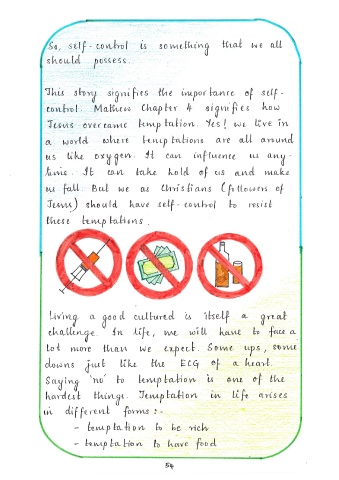 So, self-control is something that we all
should possess.
This story signifies the importance of self-
control. Mathew Chapter 4 signifies how
Jesus overcame temptation. Yes! we live in
a world where temptations are all around
us like oxygen. It can influence us any-
time. It can take hold of us and make
us fall. But we as Christians (followers of
Jesus) should have self-control to resist
these temptations.
Living a good cultured is itself a great
challenge. In life, we will have to face a
lot more than we expect. Some ups, some
downs just like the ECG of a heart.
Saying 'no' to temptation is one of the
hardest things. Temptation in life arises
in different forms:-
- temptation to be rich
- temptation to have food
54